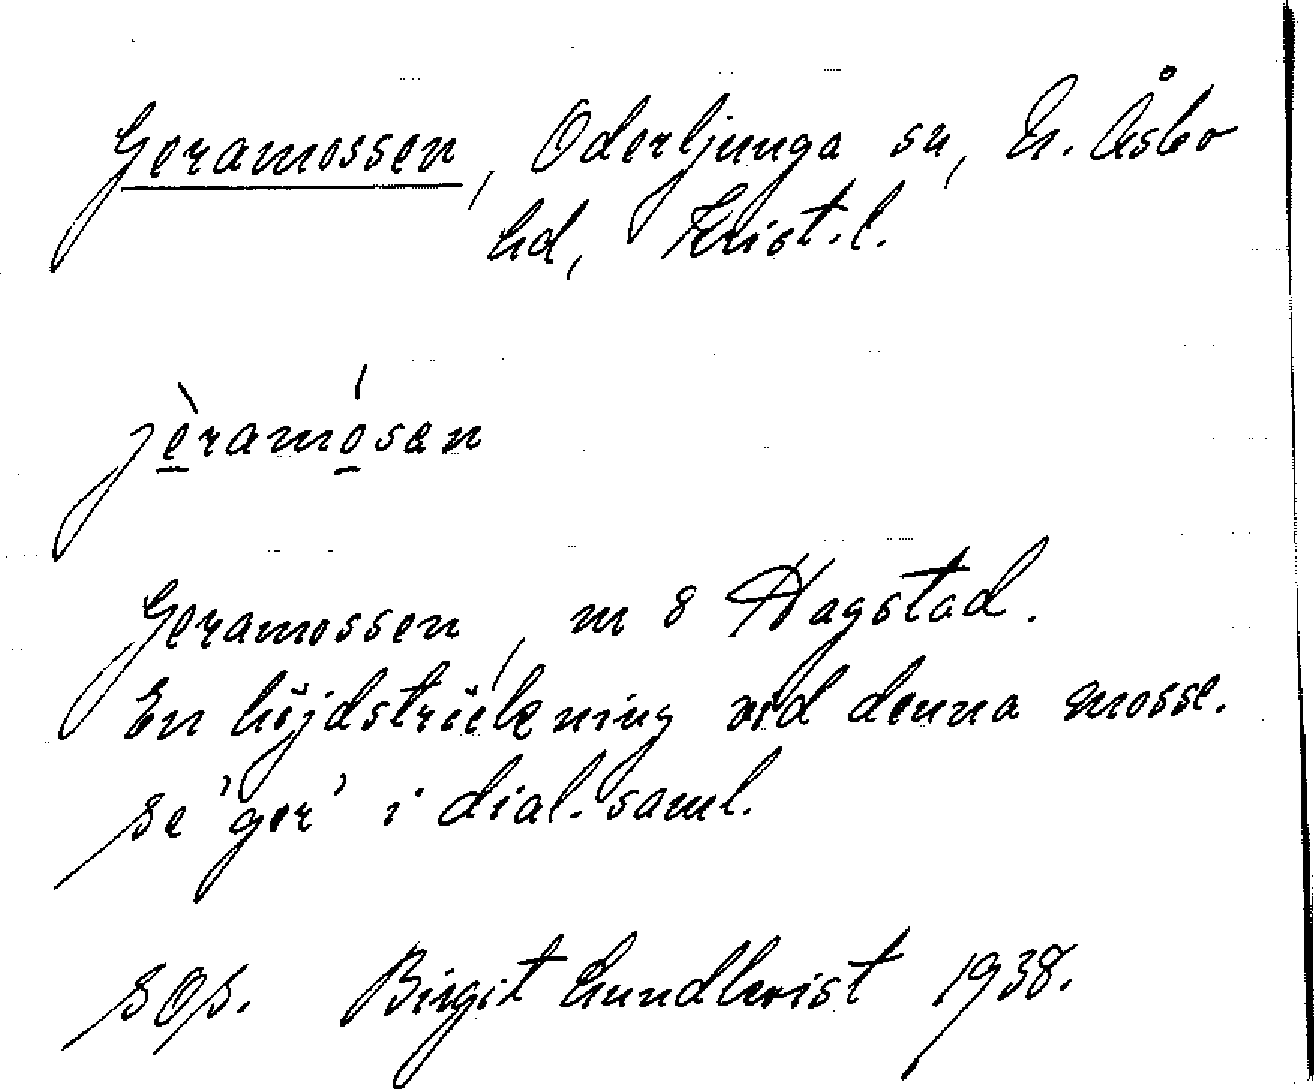 Geramossen, Oderljunga sn, N. Åsbo
hd, Krist.l.
jèramósen
Geramossen, m S Hagstad.
En höjdsträckning vid denna mosse.
Se 'ger' i dial.saml.
SOS. Birgit Lundkvist 1938.